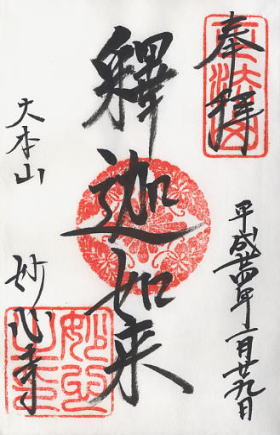 奉拝
平成廿四年二月廿九日
釋迦如来
大本山
妙心寺